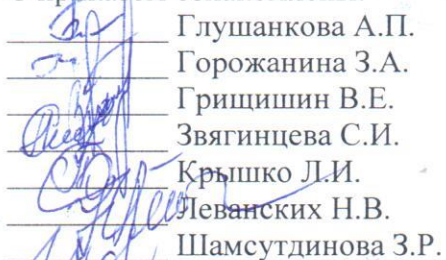 Глушанкова А.П.
Горожанина З.А.
Грищишин В.Е.
Звягинцева С.И.
Крышко Л.И.
Леванских Н.В.
Шамсутдинова З.Р.